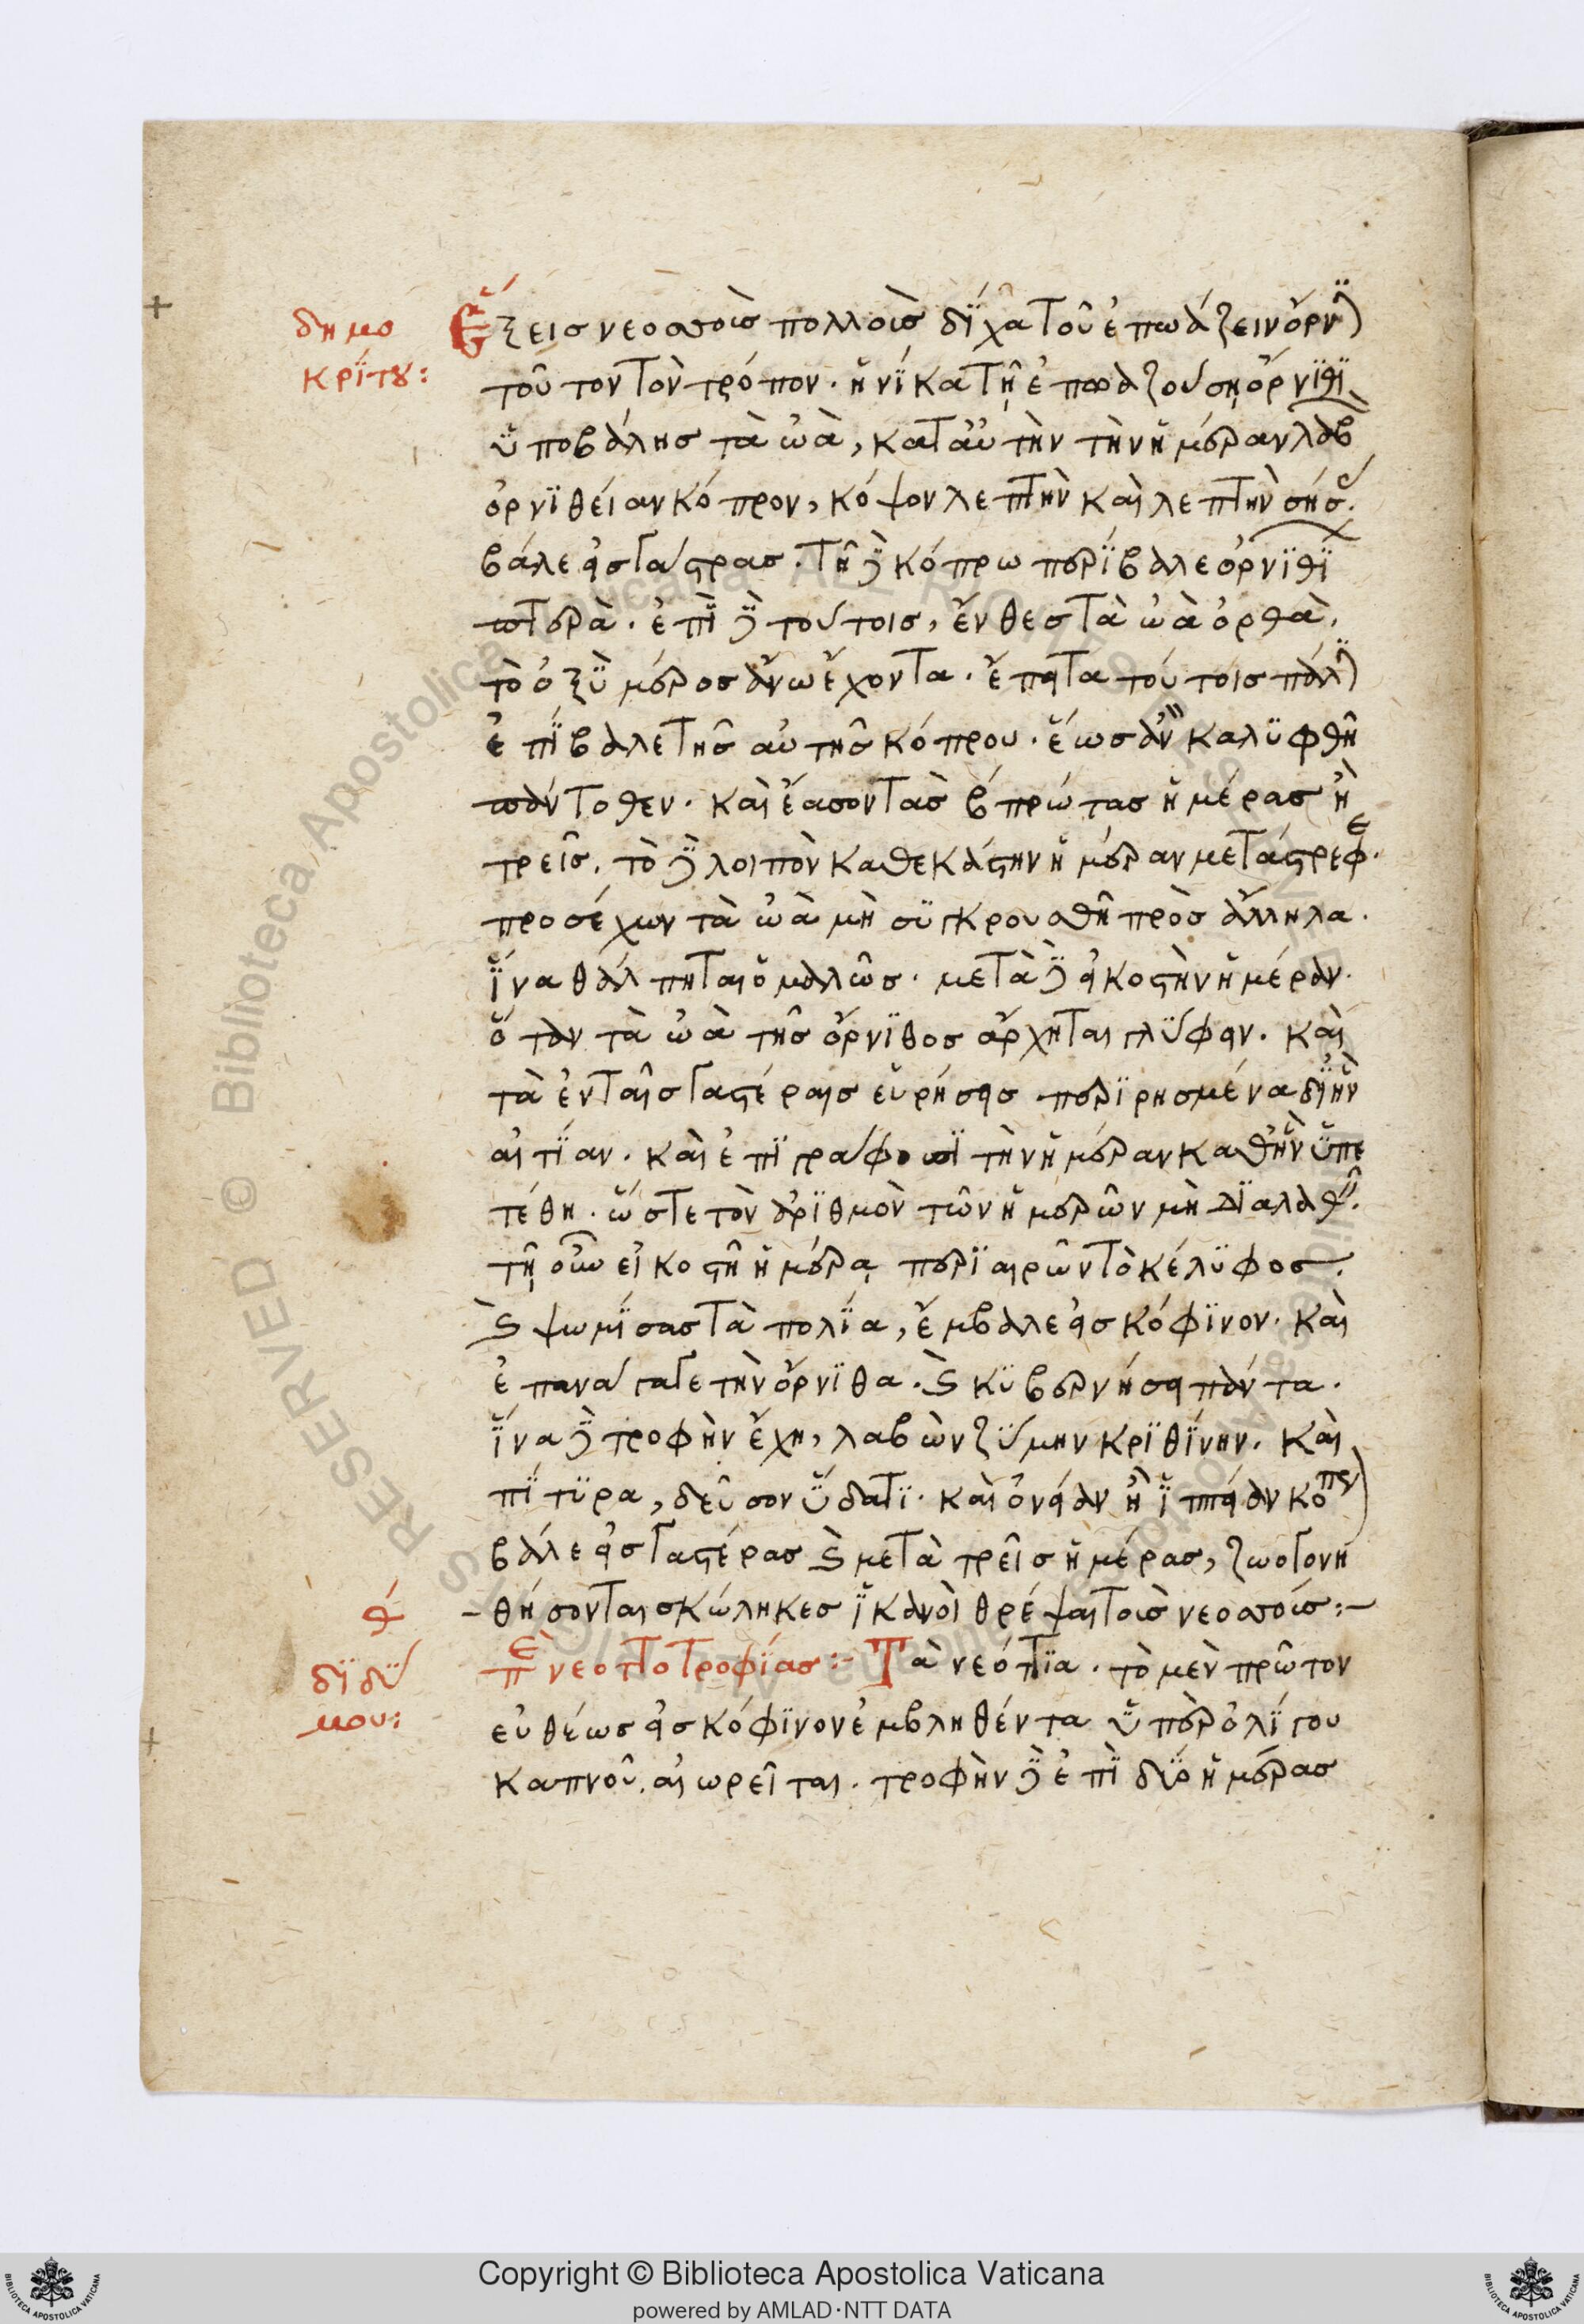 δημο
κρίτου:
Ἕξεις νεοσσοὺς πολλοὺς δίχα τοῦ ἐπωάζειν ὄρνι)
τοῦτον τὸν τρόπον. ἡνίκα τῇ ἐπωαζούσῃ ὄρνιθι
ὑποβάλῃς τὰ ὠὰ, κατ' αὐτὴν τὴν ἡμέραν λαβ
ὀρνιθείαν κόπρον, κόψον λεπτὴν καὶ λεπτὴν σήσ.
βάλε εἰς γάστρας. τῇ δὲ κόπρω περίβαλε ὀρνίθι
πτερά. ἐπὶ δὲ τούτοις, ἔνθες τὰ ὠὰ ὀρθὰ,
τὸ ὀξὺ μέρος ἄνω ἔχοντα. ἔπειτα τούτοις πάλι)
ἐπίβαλε τῆς αὐτῆς κόπρου. ἕως ἂν καλυφθῆ
πάντοθεν. καὶ ἔασον τὰς β πρώτας ἡμέρας ἢ
τρεῖς. τὸ δὲ λοιπὸν καθεκάστην ἡμέραν μετάστρεφε.
προσέχων τὰ ὠὰ μὴ συγκρουσθῆ πρὸς ἄλληλα.
ἵνα θάλπηται ὁμαλῶς. μετὰ δὲ εἰκοστὴν ἡμέραν.
ὅταν τὰ ὠὰ τῆς ὄρνιθος ἄρχηται γλύφειν. καὶ
τὰ ἐν ταῖς γαστέραις εὑρήσεις περιρησμένα δι' ἣν
αἰτίαν. καὶ ἐπιγράφουσι τὴν ἡμέραν καθ' ἣν ὑπε
τέθη. ὥστε τὸν ἀριθμὸν τῶν ἡμερῶν μὴ διαλαθ.
τῇ οὖν εἰκοστῇ ἡμέρᾳ περιαιρῶν τὸ κέλυφος.
καὶ ψωμίσας τὰ πολία, ἔμβαλε εἰς κόφινον. καὶ
ἐπανάγαγε τὴν ὄρνιθα. καὶ κυβερνήσει πάντα.
ἵνα δὲ τροφὴν ἔχη, λαβὼν ζύμην κριθίνην. καὶ
πίτυρα, δεῦσον ὕδατι. καὶ ὀνείαν ἢ ἱππείαν κόπρ)
βάλε εἰς γαστέρας καὶ μετὰ τρεῖς ἡμέρας, ζωογονη
-θήσονται σκώληκες ἱκανοὶ θρέψαι τοὺς νεοσσούς:-
θ
διδύ
μου:
πε νεοττοτροφίας:- Τὰ νεόττια. τὸ μὲν πρῶτον
εὐθέως εἰς κόφινον ἐμβληθέντα ὑπὲρ ὀλίγου
καπνοῦ. αἰωρεῖται. τροφὴν δὲ ἐπὶ δύο ἡμέρας
RESERVED © Biblioteca Apostolica Vaticana
Copyright © Biblioteca Apostolica Vaticana
powered by AMLAD·NTT DATA
BIBLIOTECA APOSTOLICA VATICANA
BIBLIOTECA APOSTOLICA VATICANA